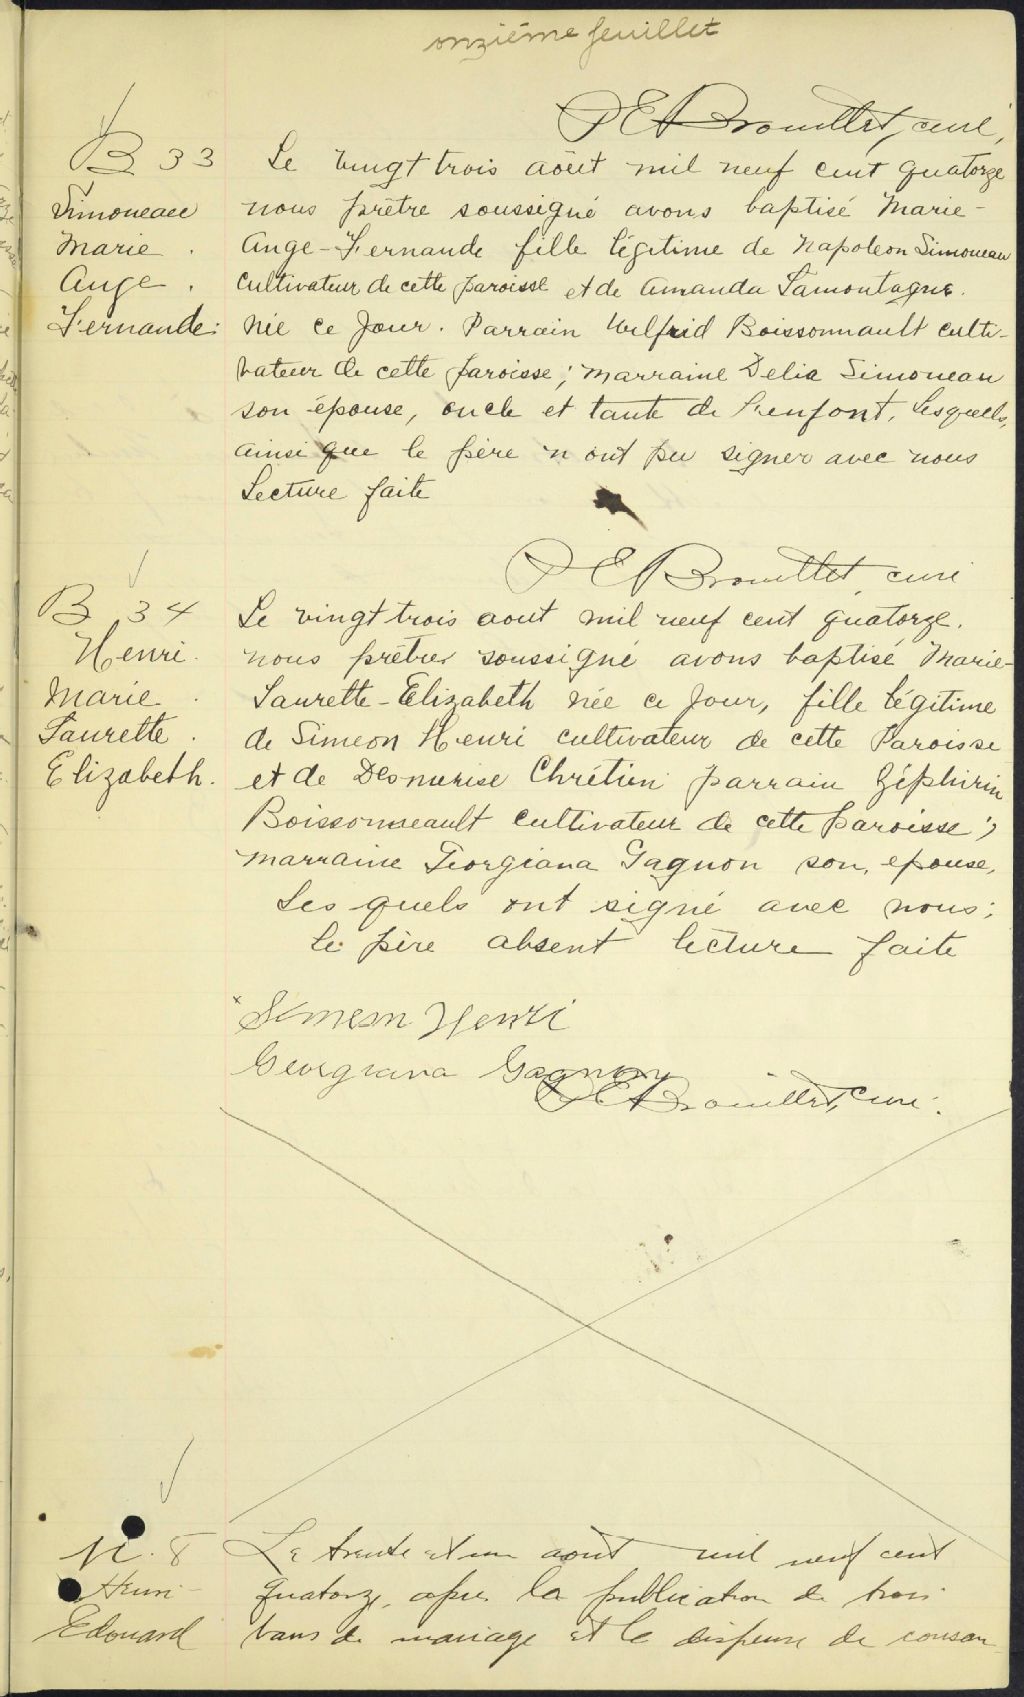 onzième feuillet
P E Brouillet, curé,
B 33
Simoneau
Marie
Ange
Fernande:
Le vingt trois août mil neuf cent quatorze
nous prêtre soussigné avons baptisé Marie-
Ange-Fernande fille légitime de Napoleon Simoneau
cultivateur de cette paroisse et de Amanda Lamontagne.
Née ce Jour. Parrain Wilfrid Boissonnault culti-
vateur de cette paroisse; marraine Delia Simoneau
son épouse, oncle et tante de l'enfant, Lesquels,
ainsi que le père n'ont pu signer avec nous
Lecture faite
P E Brouillet, curé
B 34
Henri
Marie
Laurette
Elizabeth.
Le vingt trois aout mil neuf cent quatorze.
nous prêtre soussigné avons baptisé Marie-
Laurette-Elizabeth née ce Jour, fille légitime
de Simeon Henri cultivateur de cette Paroisse
et de Desneige Chrétien parrain Zéphirin
Boissonneault cultivateur de cette paroisse;
marraine Georgiana Gagnon son epouse,
Les quels ont signé avec nous;
le père absent lecture faite
x Simeon Henri
Georgiana Gagnon
P E Brouillet, curé.
M. 8
Henri
Edouard
Le trente et un août mil neuf cent
quatorze, apres la publication de trois
bans de mariage et la dispense de consan